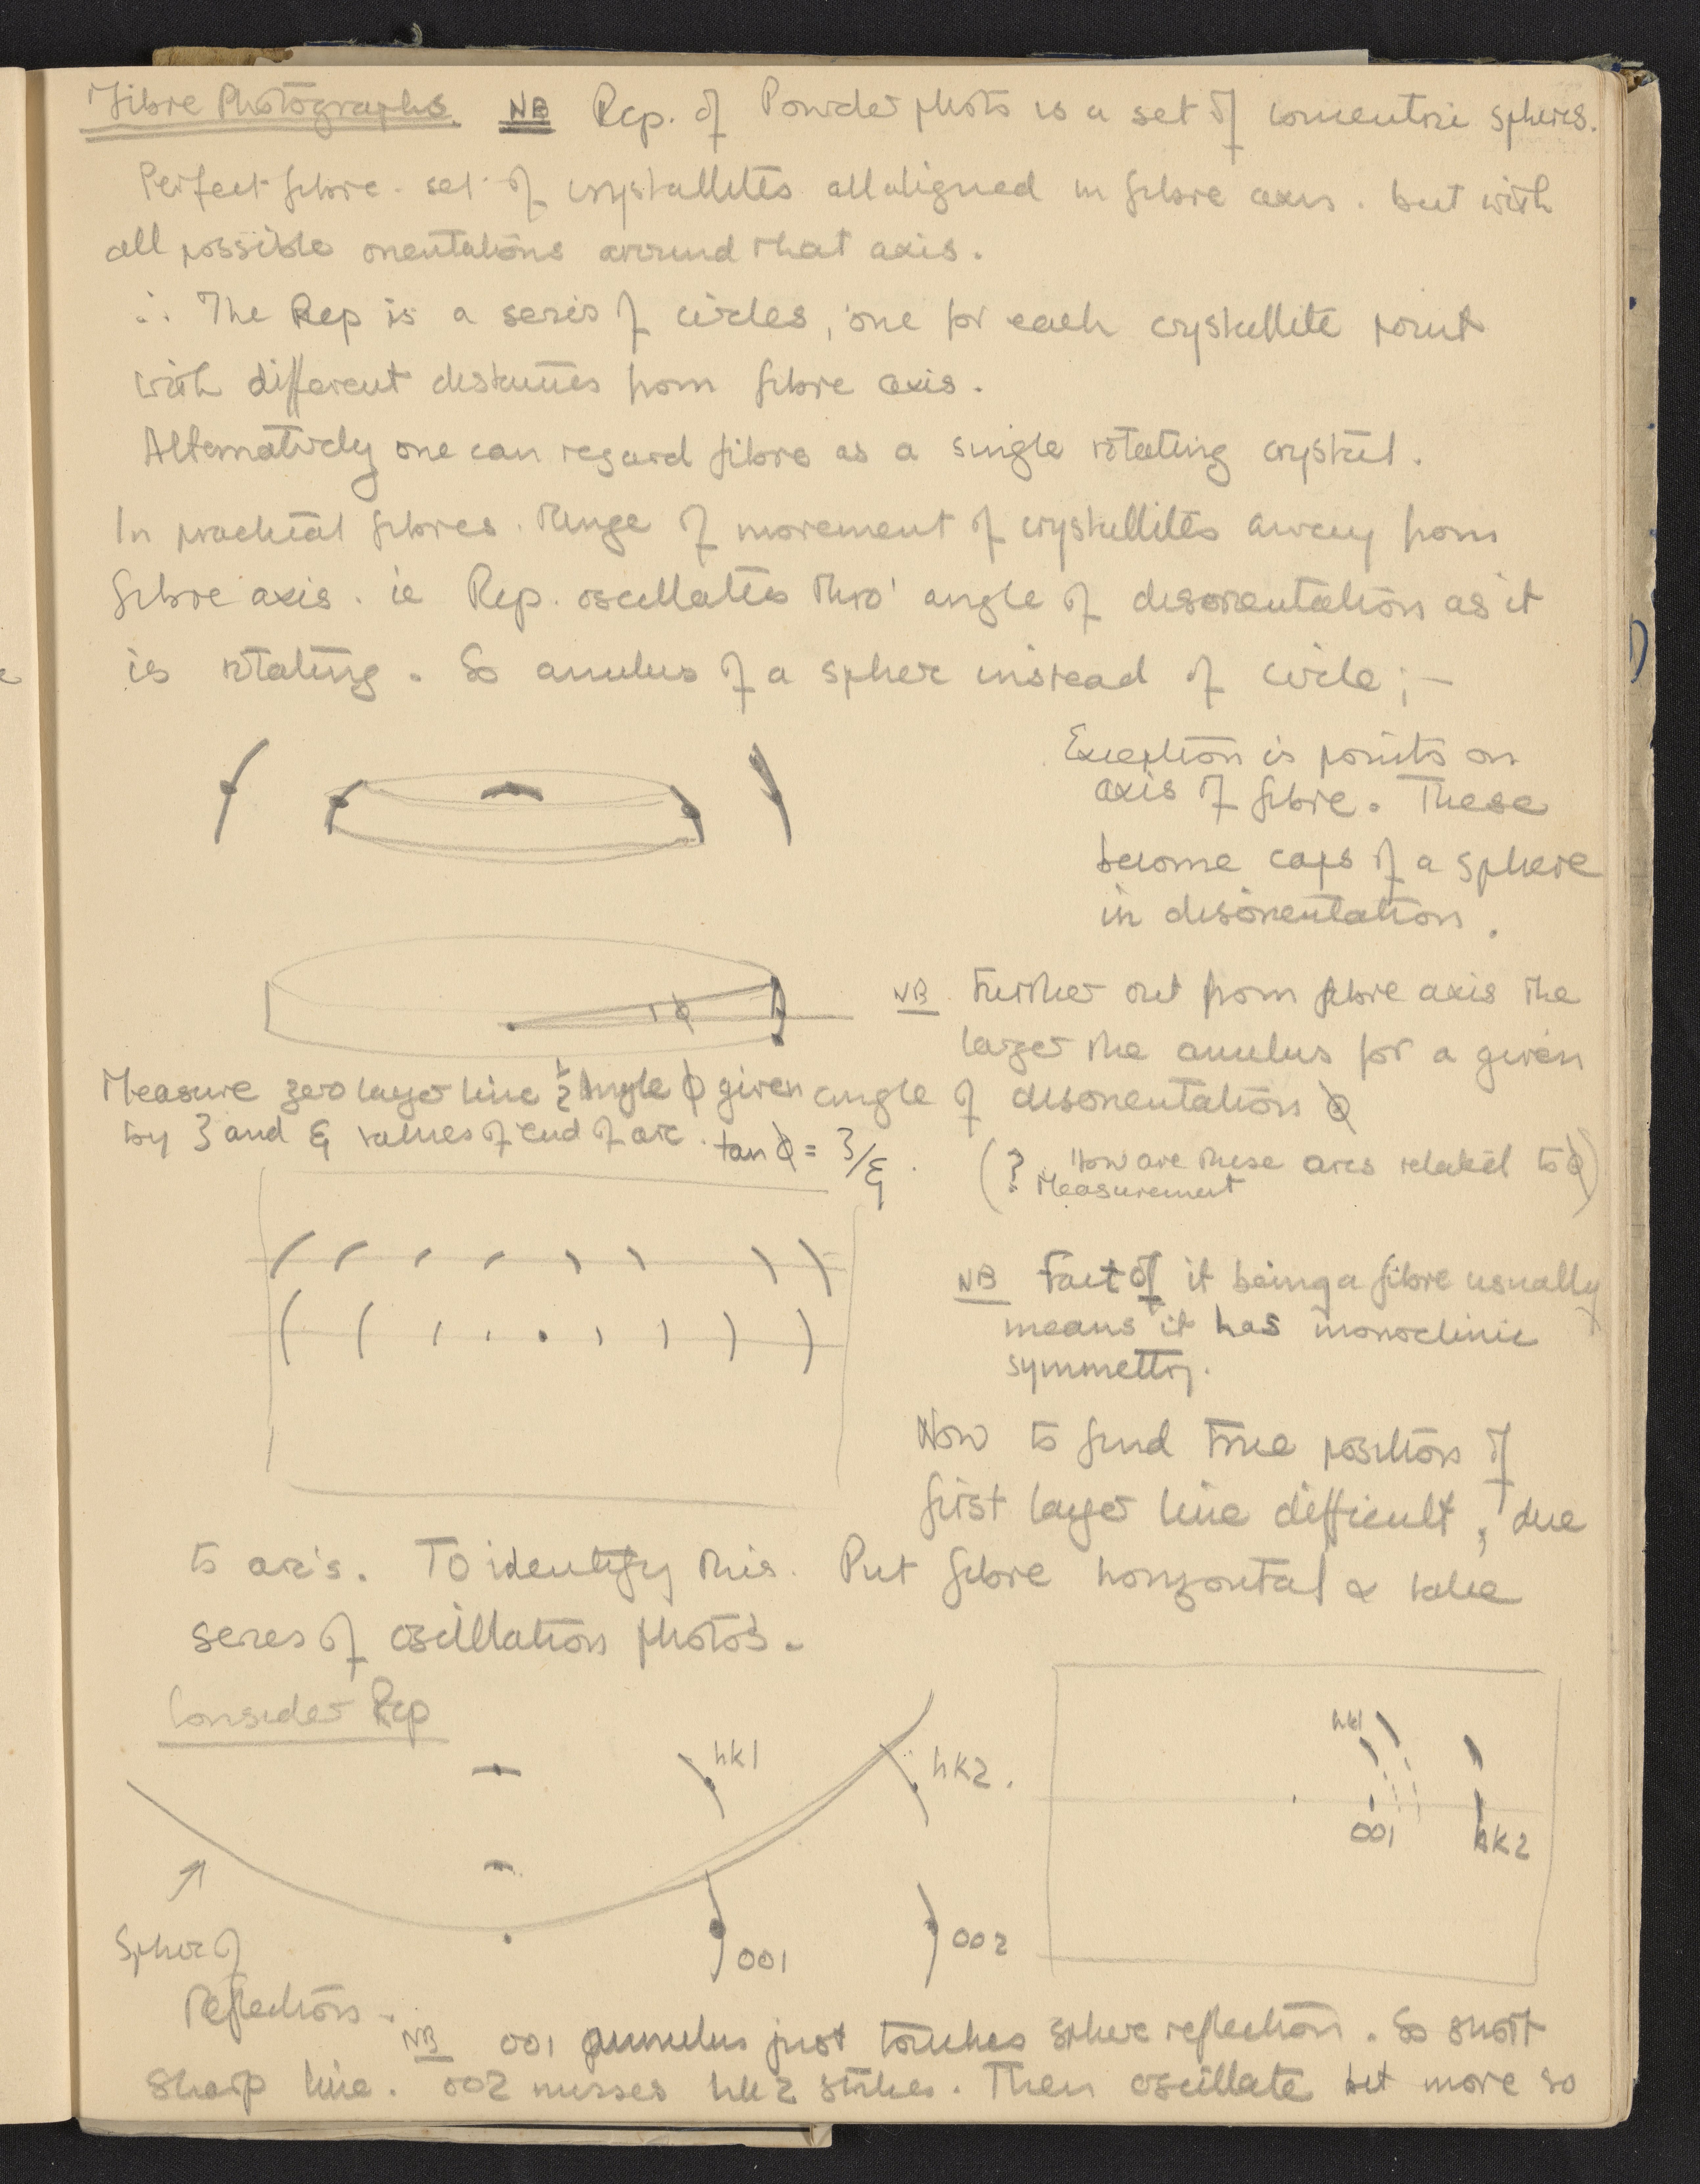 Fibre Photographs. NB Rep. of Powder photo is a set of concentric spheres.
Perfect fibre - set of crystallites all aligned in fibre axis. but with
all possible orientations around that axis.
∴ The Rep is a series of circles, one for each crystallite point
with different distances from fibre axis.
Alternatively one can regard fibre as a single rotating crystal.
In practical fibres. Range of movement of crystallites away from
fibre axis. ie Rep. oscillates thro' angle of disorientation as it
is rotating. So anulus of a sphere instead of circle; -
Exception is points on
axis of fibre. These
become caps of a sphere
in disorientation.
φ
NB Further out from fibre axis the
larger the anulus for a given
angle of disorientation φ
Measure zero layer line ½ angle φ given
by ζ and ξ values of end of arc. tan φ = ζ/ξ.
(? How are these arcs related to φ)
Measurement
NB Fact of it being a fibre usually
means it has monoclinic
symmettry.
Now to find true position of
first layer line difficult, due
to arc's. To identify this. Put fibre horizontal & take
series of oscillation photos.
Consider Rep
hk1
hk2.
001
002
Sphere of
Reflection.
hk1
001
hk2
NB 001 annulus just touches sphere reflection. So short
sharp line. 002 misses hk2 strikes. Then oscillate bit more so